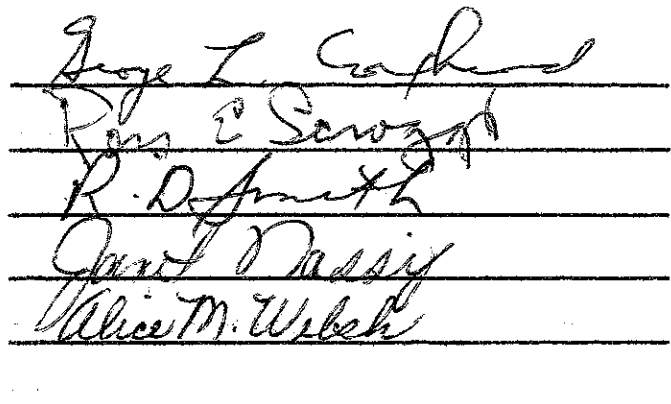 George L.
Ross E Scroggs
R. D. Smith
Janet Massiy
Alice M. Welsh